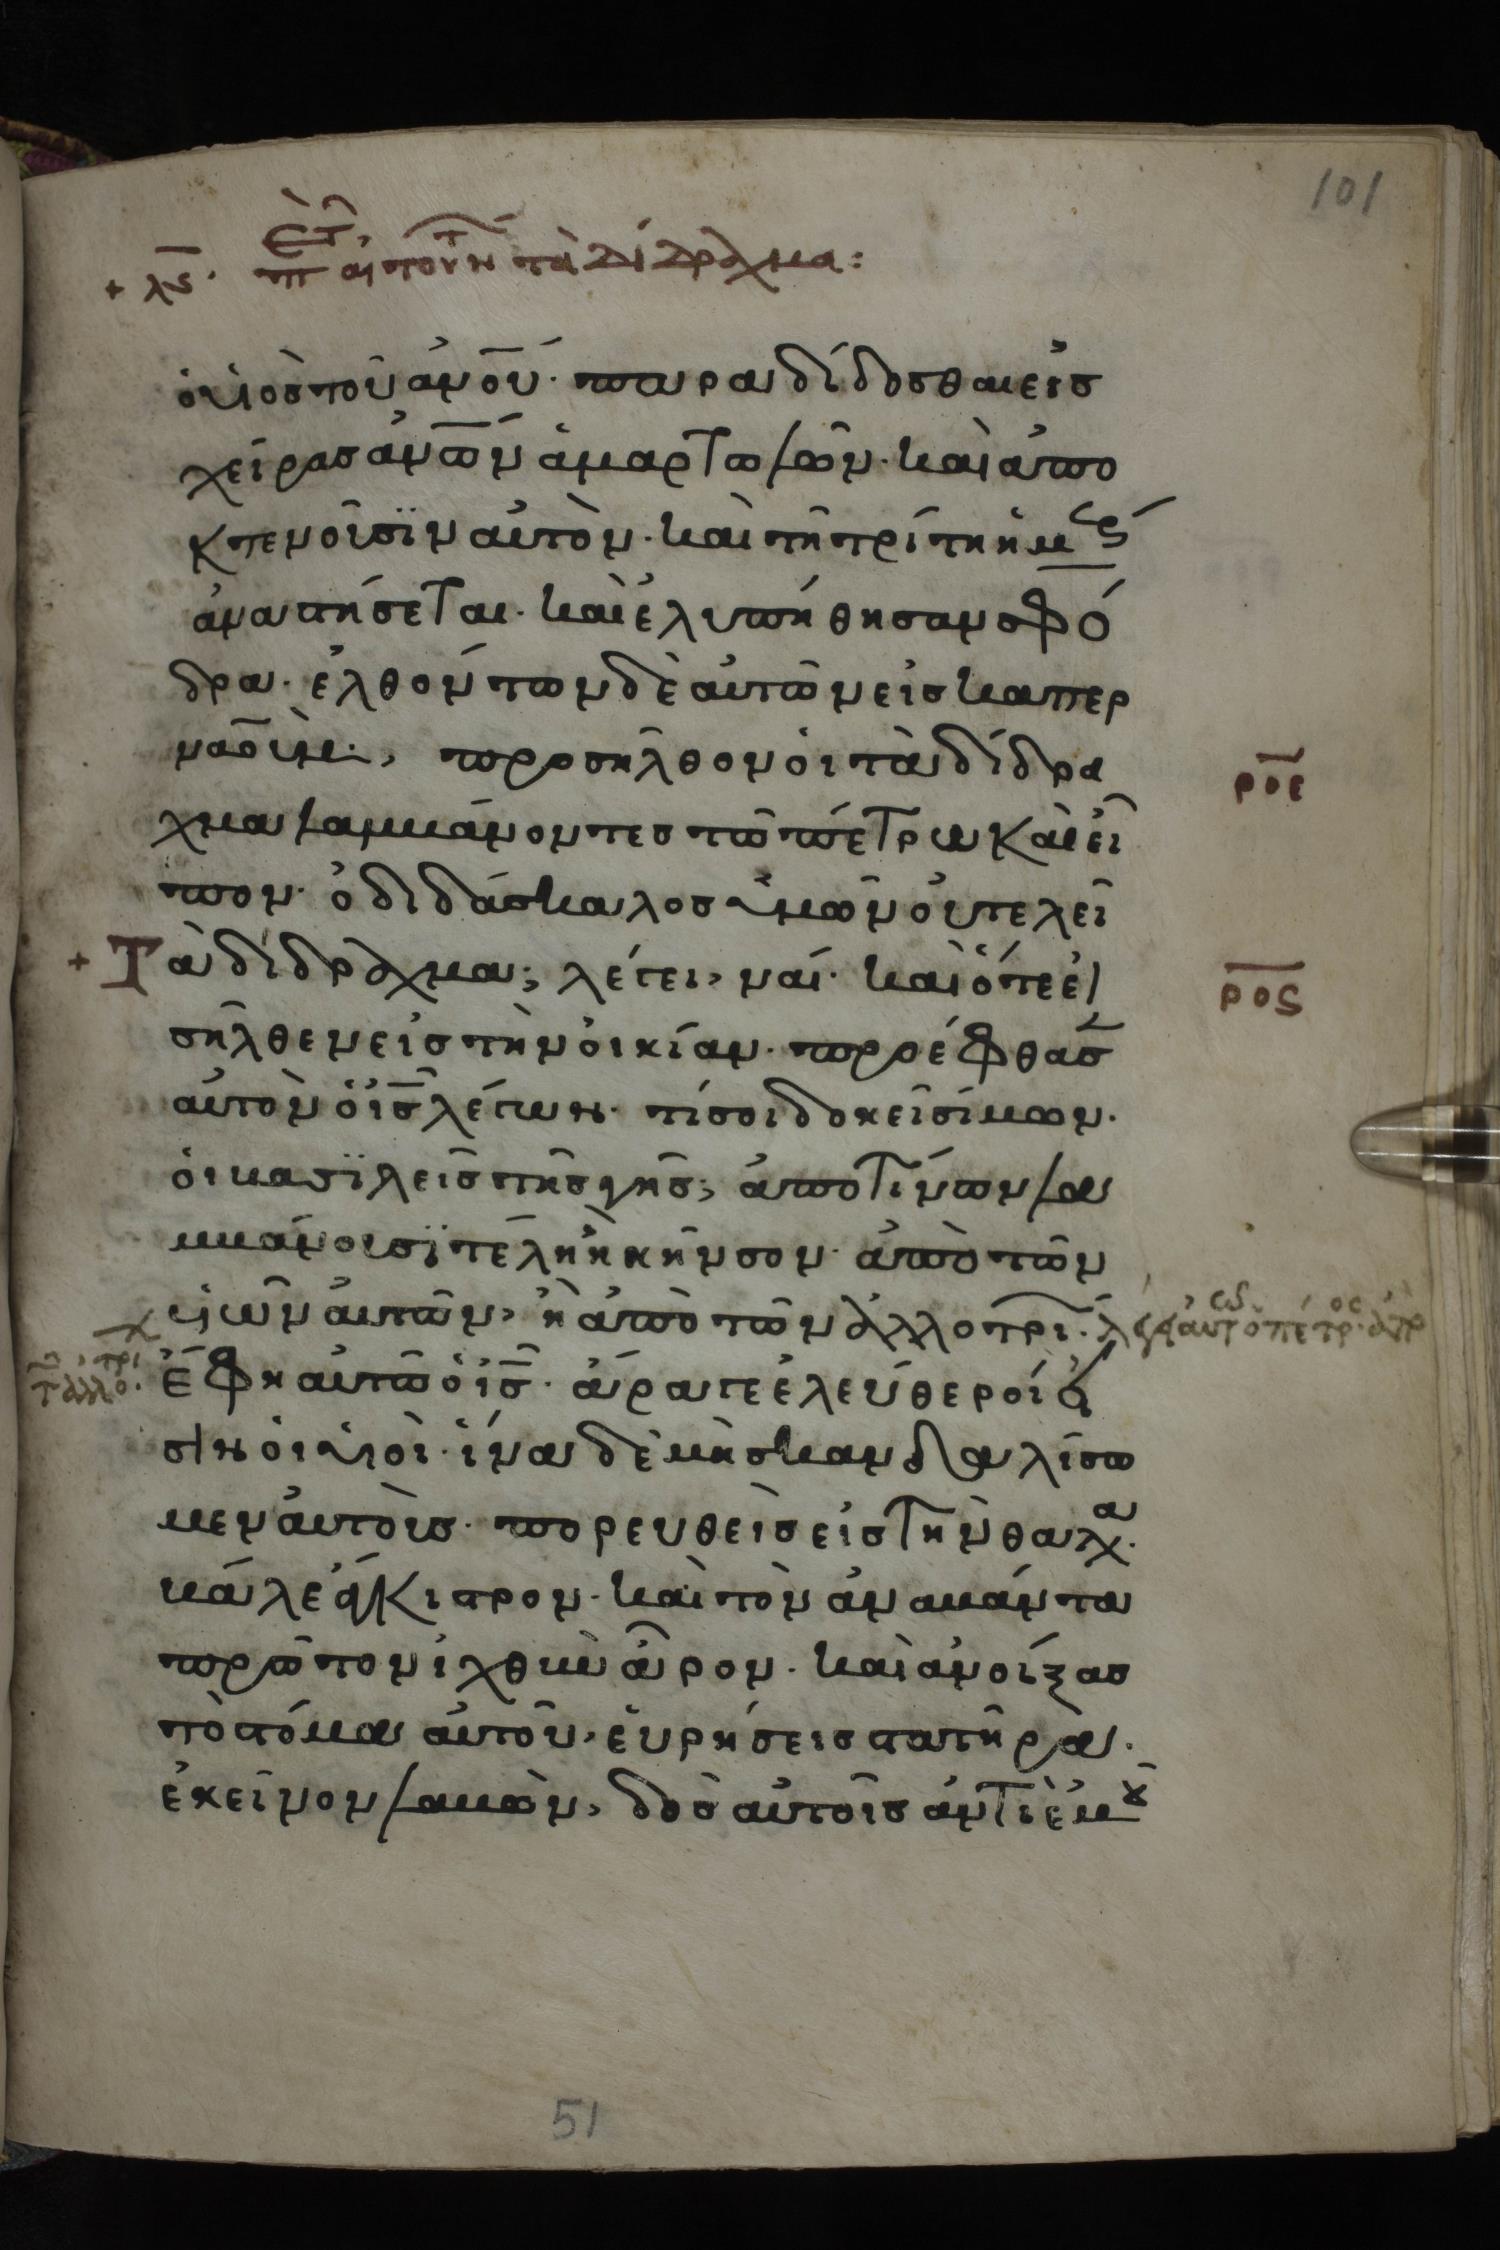 101
+ λϛ· π ετ, αιτουντ τὰ δίδραχμα:
ὁ υἱὸς τοῦ ἀν̅ο̅υ̅· παραδίδοσθαι εἰς
χεῖρας ἀν̅ω̅ν̅ ἁμαρτωλῶν· καὶ ἀπο
κτενοῦσϊν αὐτὸν· καὶ τῆ τρίτη ἡμερ
ἀναστήσεται· καὶ ἐλυπήθησαν σφό
δρα· ἐλθόντων δὲ αὐτῶν εἰς καπερ
ναοὺμ·, προσῆλθον οἱ τὰ δίδρα
ροε
χμα λαμβάνοντες τῶ πέτρω καὶ εἶ
πον· ὁ διδάσκαλος ὑμῶν οὐ τελεῖ
+ Τὰ δίδραχμα; λέγει, ναί· καὶ ὅτε εἰ
ροϛ
σῆλθεν εἰς τὴν οἰκίαν· προέφθασ
αὐτὸν ὁ ι̅ς̅ λέγων· τί σοι δοκεῖ σίμων·
οἱ βασϊλεῖς τῆς γῆς; ἀπὸ τίνων λα
μβάνουσϊ τέλη ἢ κῆνσον· ἀπὸ τῶν
υἱῶν αὐτῶν, ἢ ἀπὸ τῶν ἀλλοτρι·
λέγει αὐτῶ ὁ πέτρος· ἀπ
τ ἀλλοτρι·
Ἔφη αὐτῶ ὁ ι̅ς̅· ἄρα γε ἐλεύθεροί εἰ
σιν οἱ υἱοὶ· ἵνα δὲ μὴ σκανδαλίσω
μεν αὐτοὺς· πορευθεὶς εἰς τὴν θαλα·
βάλε ἄγκιστρον· καὶ τὸν ἀναβάντα
πρῶτον ἰχθὺν ἆρον· καὶ ἀνοίξας
τὸ στόμα αὐτοῦ, εὑρήσεις στατῆρα·
ἐκεῖνον λαβὼν, δὸς αὐτοῖς ἀντὶ ἐμοῦ
51